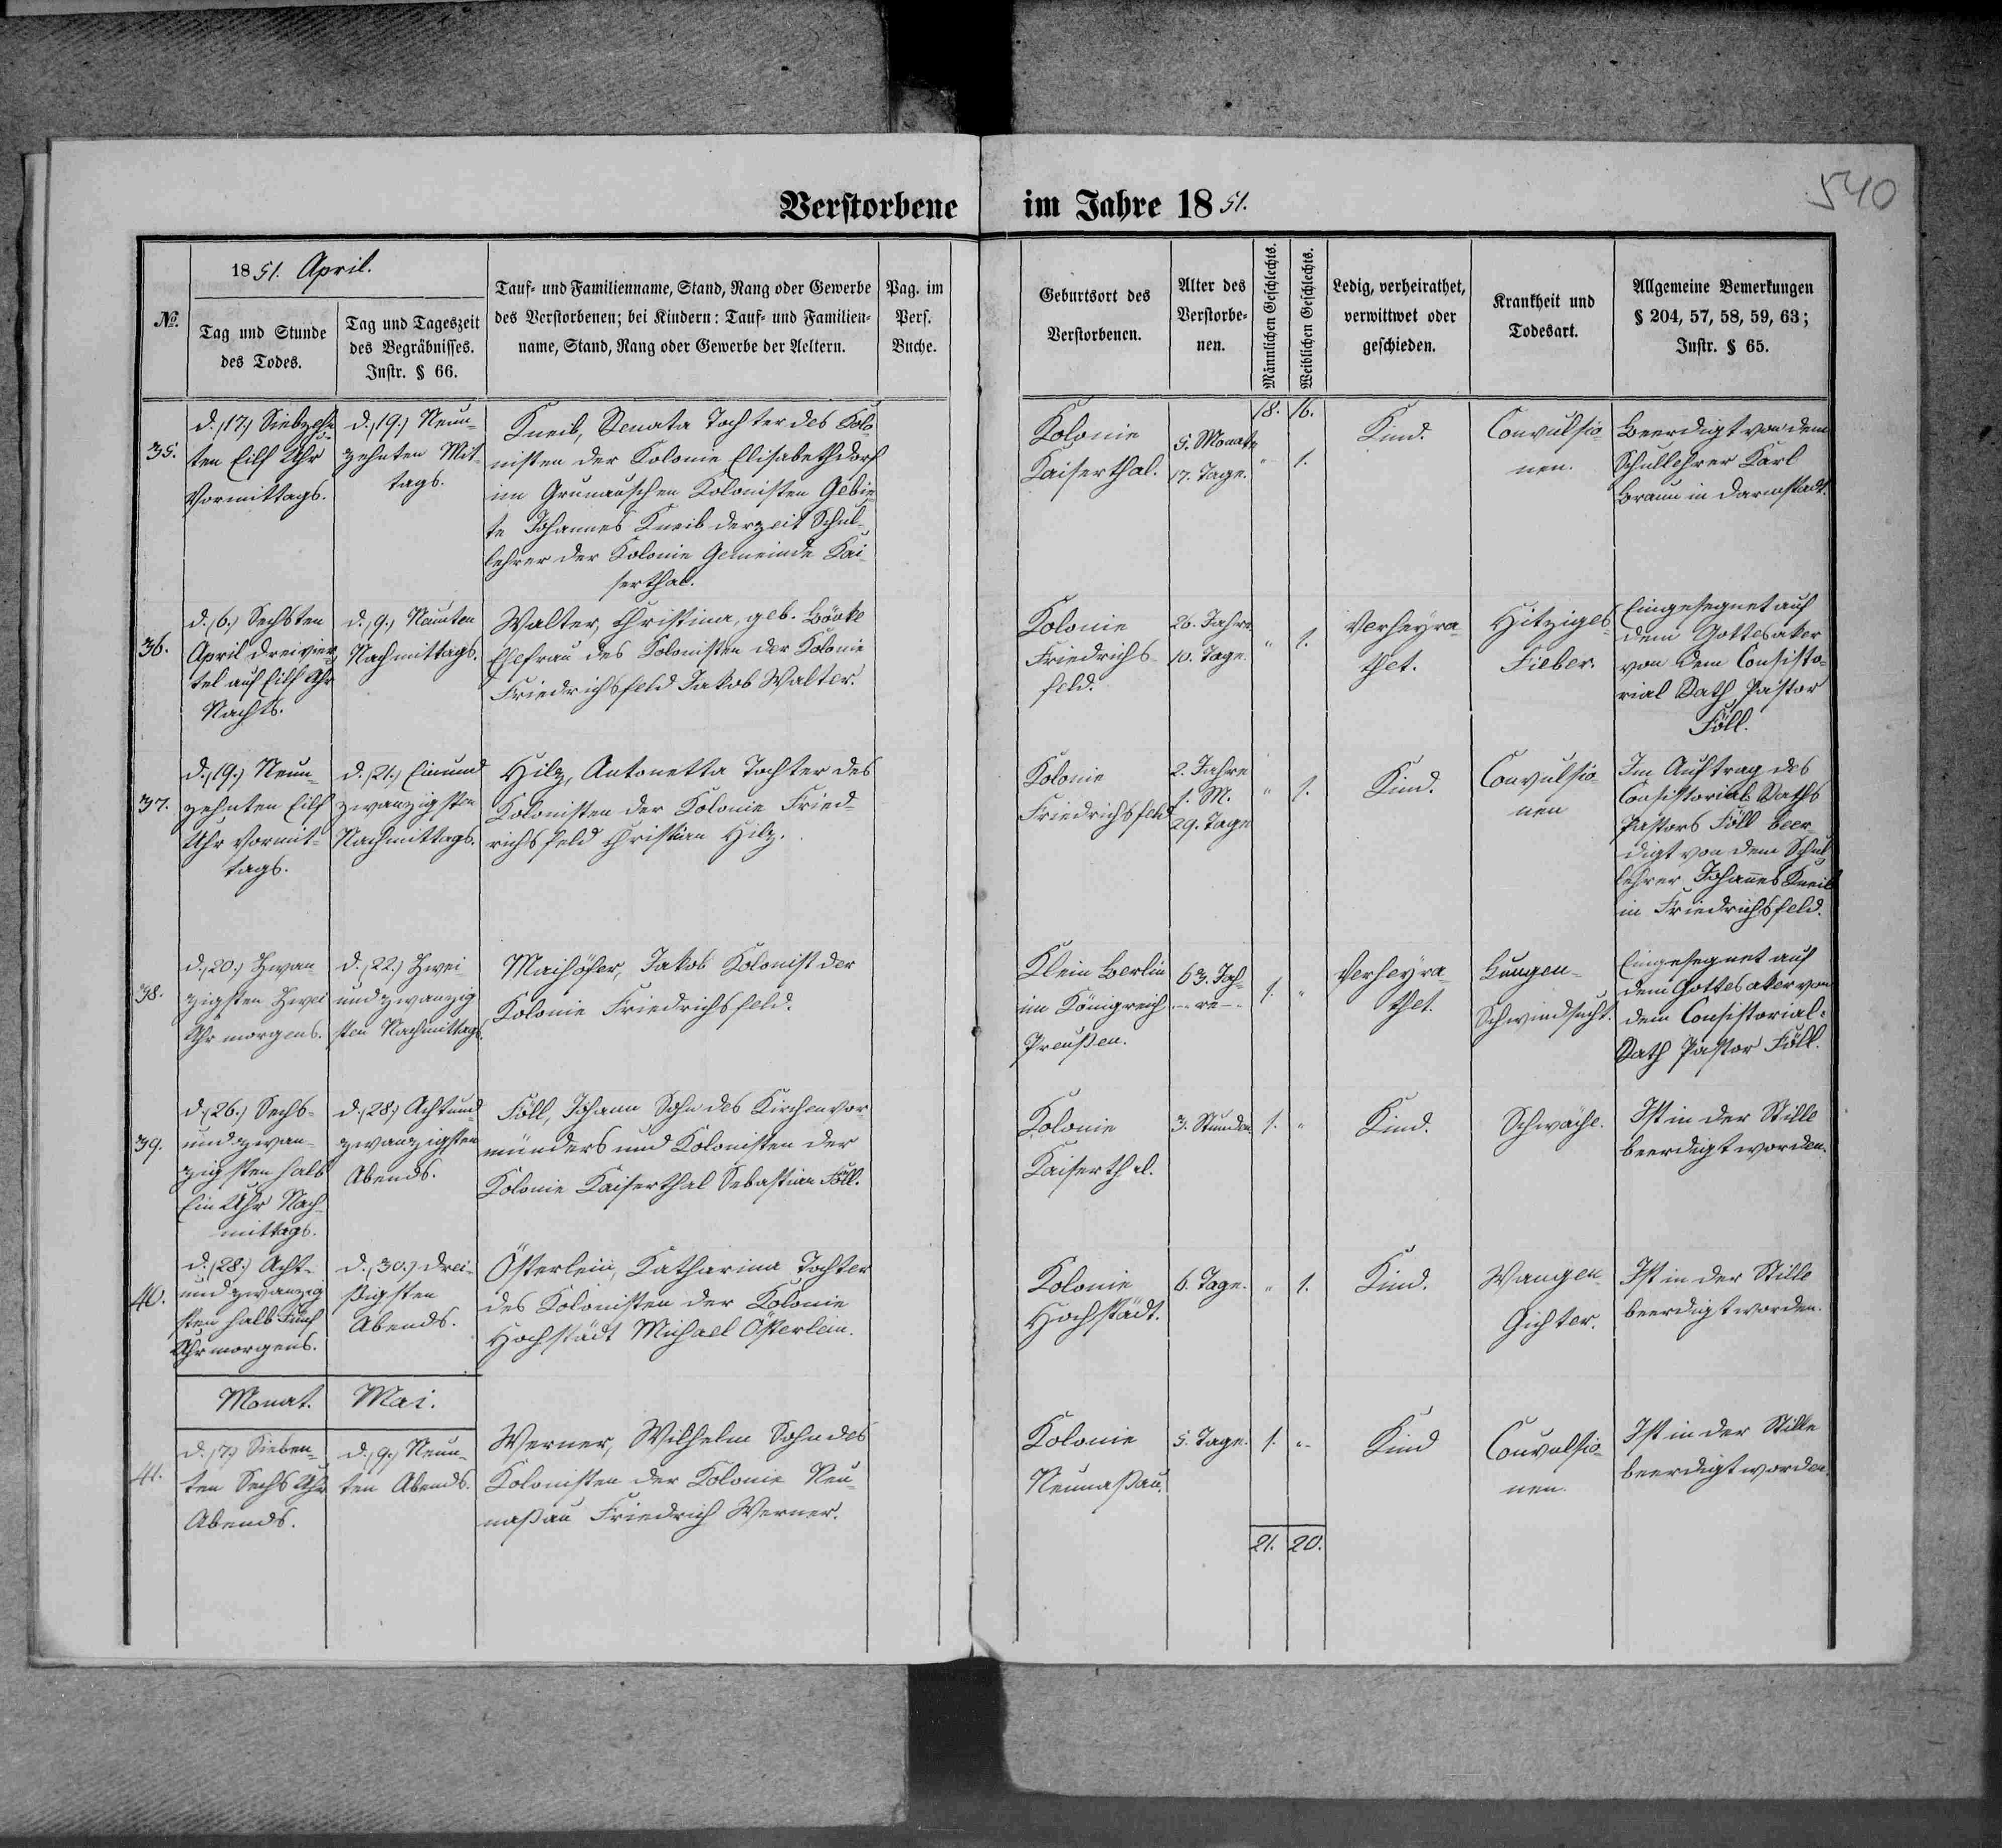 540
Verstorbene im Jahre 1851.
No.
1851. April.
Tag und Stunde
des Todes.
Tag und Tageszeit
des Begräbnisses.
Instr. § 66.
Tauf- und Familienname, Stand, Rang oder Gewerbe
des Verstorbenen; bei Kindern: Tauf- und Familien-
name, Stand, Rang oder Gewerbe der Aeltern.
Pag. im
Pers.
Buche.
Geburtsort des
Verstorbenen.
Alter des
Verstorbe-
nen.
Männlichen Geschlechts.
Weiblichen Geschlechts.
Ledig, verheirathet,
verwittwet oder
geschieden.
Krankheit und
Todesart.
Allgemeine Bemerkungen
§ 204, 57, 58, 59, 63;
Instr. § 65.
18. 16.
35.
d. (17.) Siebzehn-
ten Eilf Uhr
Vormittags.
d. (19.) Neun-
zehnten Mit-
tags.
Kneib, Renata Tochter des Kolo-
nisten der Kolonie Elisabethdorf
im Grunauschen Kolonisten Gebie-
te Johannes Kneib derzeit Schul-
lehrer der Kolonie Gemeinde Kai-
serthal.
Kolonie
Kaiserthal.
5. Monate
17. Tage.
" 1.
Kind.
Convulsio-
nen.
Beerdigt von dem
Schullehrer Karl
Braun in Darmstadt.
36.
d. (6.) Sechsten
April dreivier-
tel auf Eilf Uhr
Nachts.
d. (9.) Neunten
Nachmittags.
Walter, Christina, geb.
Ehefrau des Kolonisten der Kolonie
Friedrichsfeld Jakob Walter.
Kolonie
Friedrichs-
feld.
26. Jahre
10. Tage.
" 1.
Verheyra-
thet.
Hitziges-
Fieber.
Eingesegnet auf
dem Gottesaker
von dem Consisto-
rial Rath Pastor
Föll.
37.
d. (19.) Neun-
zehnten Eilf
Uhr Vormit-
tags.
d. (21.) Einund
zwanzigsten
Nachmittags.
Hilz, Antonetta Tochter des
Kolonisten der Kolonie Fried-
richsfeld Christian Hilz.
Kolonie
Friedrichsfeld
2. Jahre
1. M.
29. Tage
" 1.
Kind.
Convulsio-
nen
Im Auftrag des
Consistorial Raths
Pastors Föll beer-
digt von dem Schul-
lehrer Johannes Kneib
in Friedrichsfeld.
38.
d. (20.) Zwan-
zigsten Zwei
Uhr morgens.
d. (22.) Zwei-
undzwanzig-
sten Nachmittags.
Maihöfer, Jakob Kolonist der
Kolonie Friedrichsfeld.
Klein Berlin
im Königreich
Preußen.
63. Jah-
re
1. "
Verheyra-
thet.
Lungen-
Schwindsucht.
Eingesegnet auf
dem Gottesaker von
dem Consistorial-
Rath Pastor Föll.
39.
d. (26.) Sechs-
undzwan-
zigsten halb
Ein Uhr Nach-
mittags.
d. (28.) Achtund-
zwanzigsten
Abends.
Föll, Johann Sohn des Kirchenvor-
münders und Kolonisten der
Kolonie Kaiserthal Sebastian Föll.
Kolonie
Kaiserthal.
3. Stunden.
1. "
Kind.
Schwäche.
Ist in der Stille
beerdigt worden.
40.
d. (28.) Acht-
undzwanzig-
sten halb Fünf
Uhr morgens.
d. (30.) Drei-
ßigsten
Abends.
Österlein, Katharina Tochter
des Kolonisten der Kolonie
Hochstädt Michael Österlein.
Kolonie
Hochstädt.
6. Tage.
" 1.
Kind.
Gichter.
Ist in der Stille
beerdigt worden.
Monat. Mai.
41.
d. (7.) Sieben-
ten Sechs Uhr
Abends.
d. (9.) Neun-
ten Abends.
Werner, Wilhelm Sohn des
Kolonisten der Kolonie Neu-
naßau Friedrich Werner.
Kolonie
Neunaßau.
5. Tage.
1. "
Kind
Convulsio-
nen.
Ist in der Stille
beerdigt worden.
21. 20.